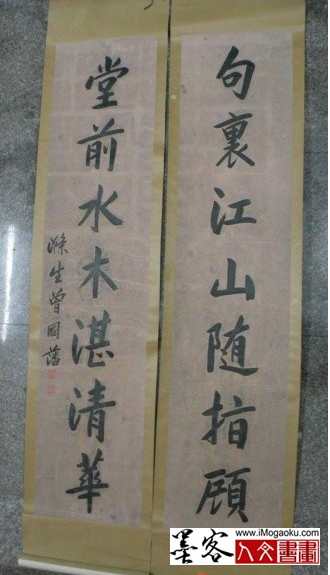 句裏江山随指顧
堂前水木湛清華
滌生曾国藩
墨客
www.iMogaoku.com
人文書畫